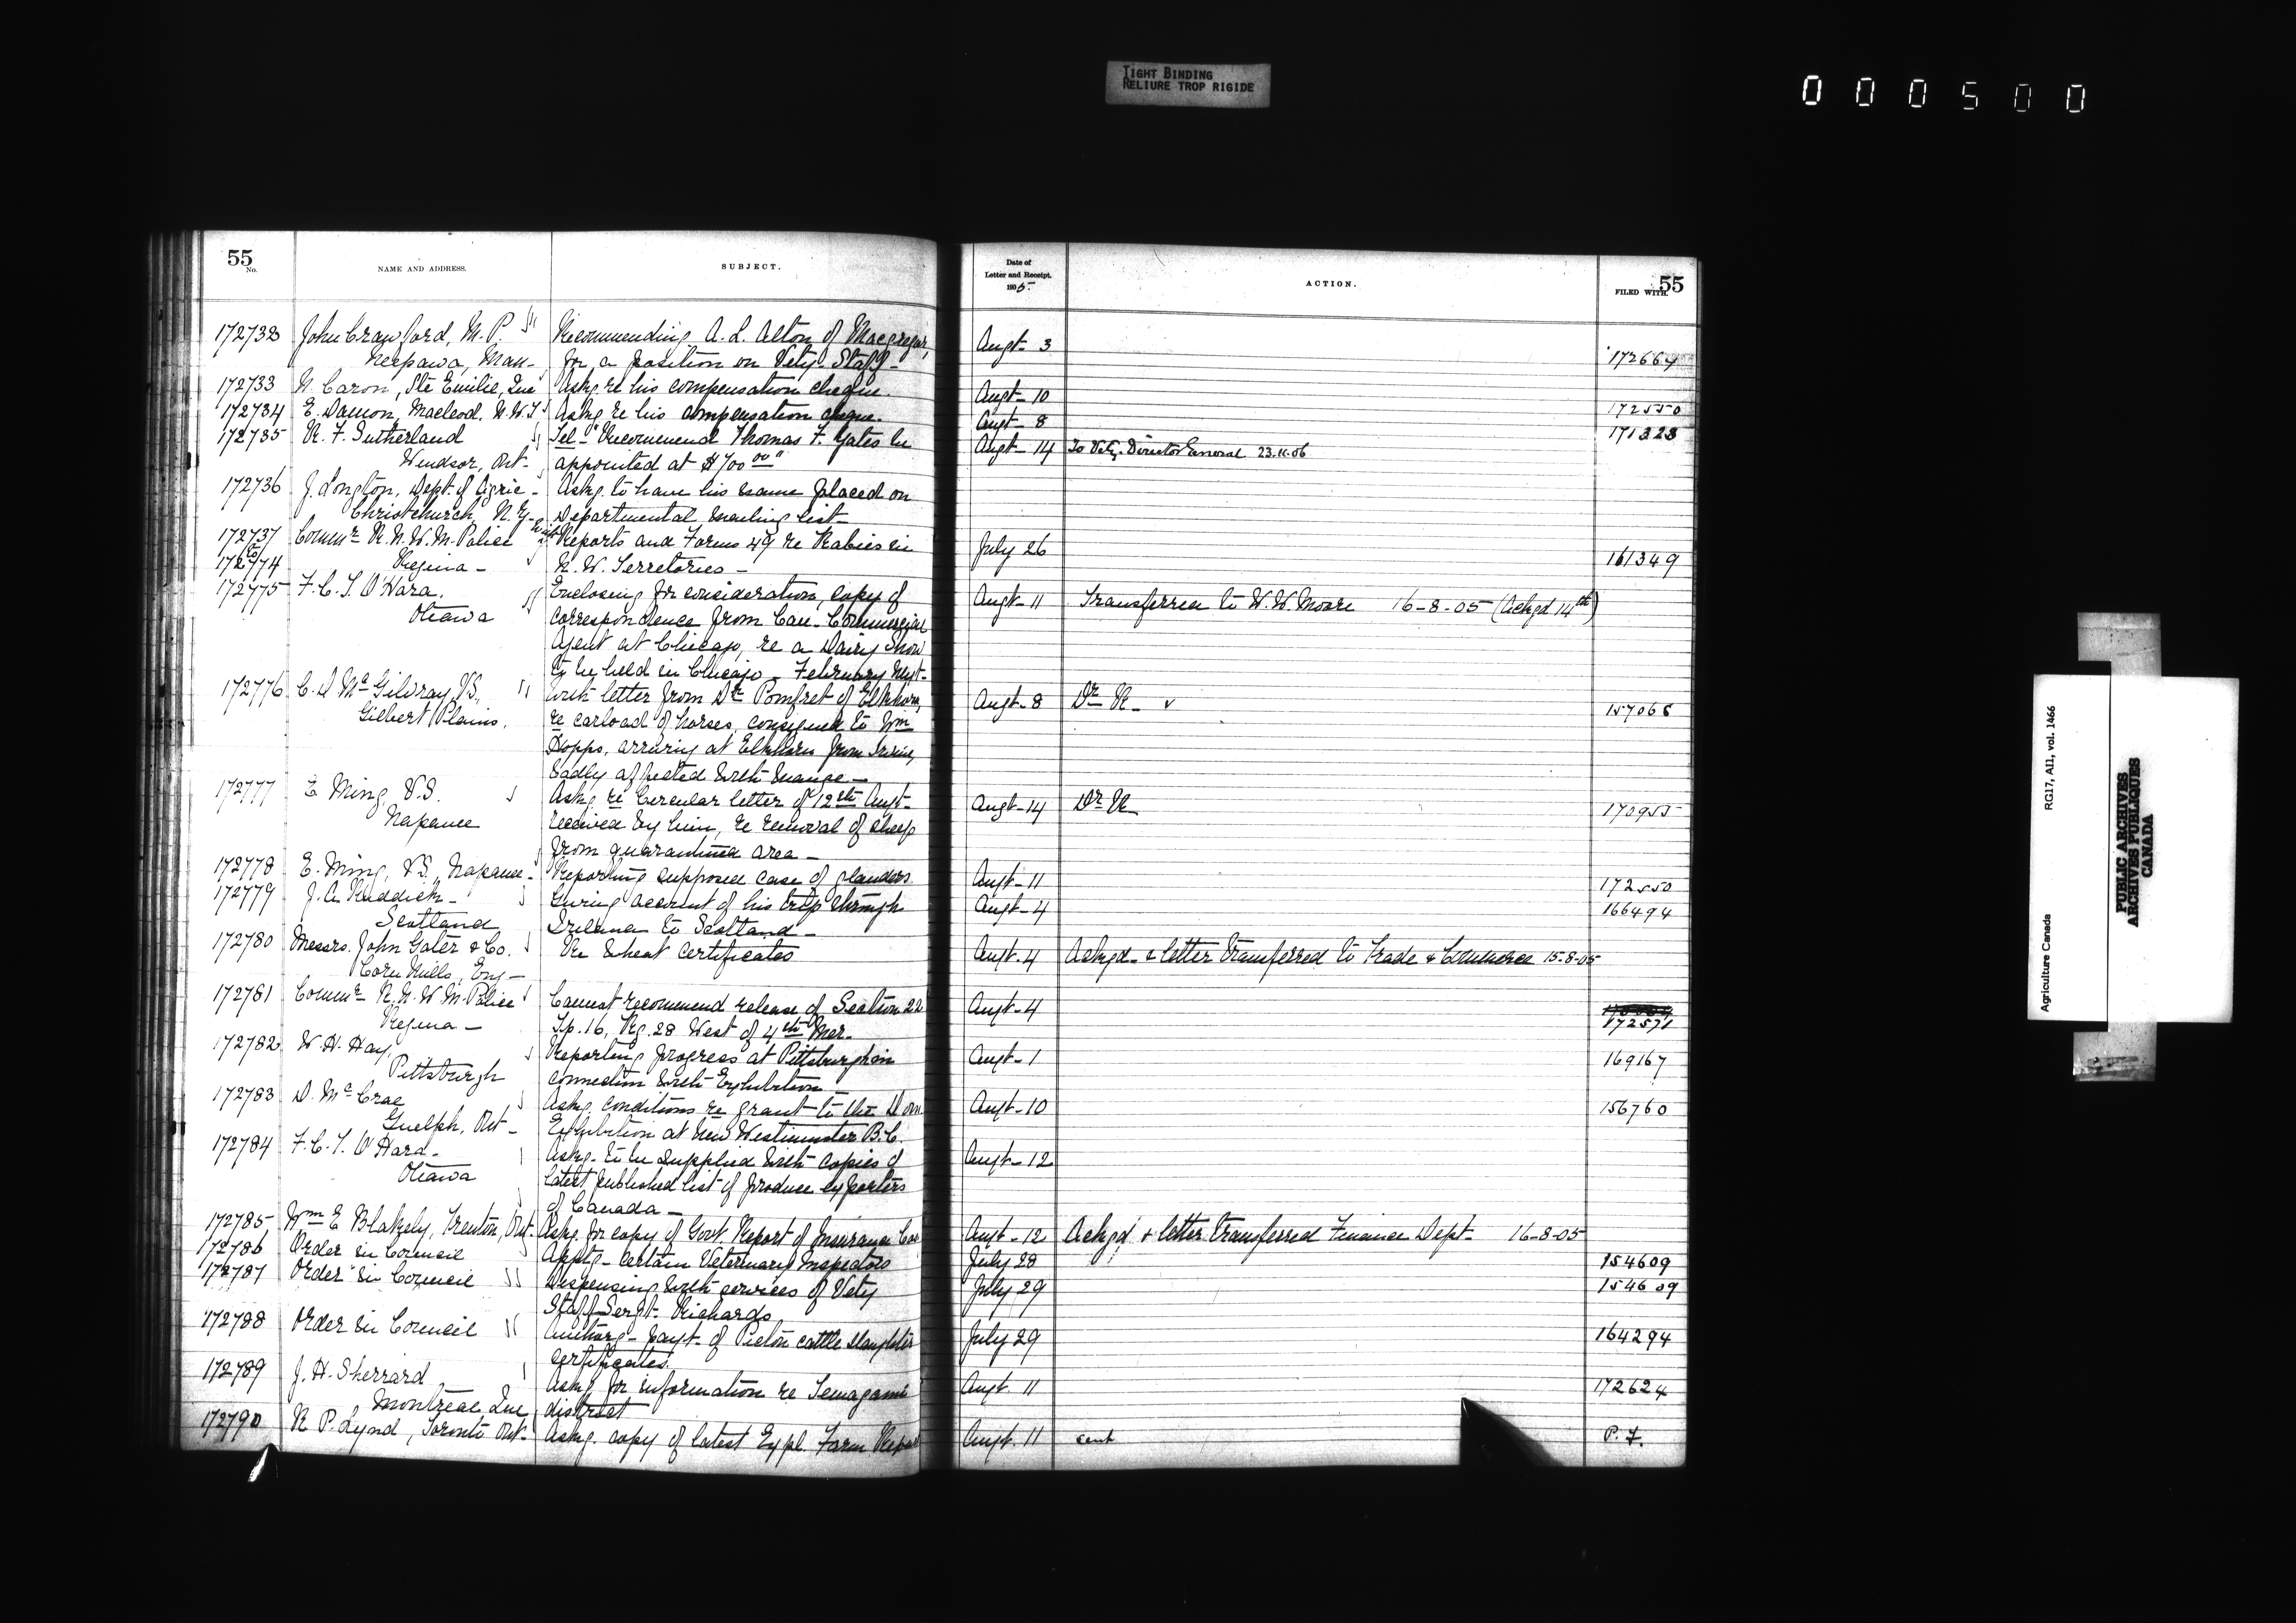 TIGHT BINDING
RELIURE TROP RIGIDE
000500
55
No.
NAME AND ADDRESS.
SUBJECT.
172732 John Crawford, M.P. Recommending A. L. Alton of Macgregor,
Neepawa, Man- for a position on Vety. Staff-
172733 N. Caron, Ste Emilie, Que Askg re his compensation cheque.
172734 E. Damon, Macleod. N.W.T Askg re his compensation cheque.
172735 R. F. Sutherland Tel- "Recommend Thomas F. Yates be
Windsor, Ont- appointed at $700 00"
172736 J. Longton, Dept. of Agric- Askg. to have his name placed on
Christchurch N.Z- Departmental mailing list-
172737 Commr R.N.W.M. Police Reports and Forms 49 re Rabies in
to
172774 Regina- N.W. Territories-
172775 F. C. T. O'Hara. Enclosing for consideration, copy of
Ottawa correspondence from Can- Commercial
Agent at Chicago, re a Dairy Show
to be held in Chicago- February Next-
172776 C. D. McGilvray, V.S., With letter from Dr Pomfret of Elkhorn,
Gilbert Plains. re carload of horses, consigned to Wm
Hopps, arriving at Elkhorn from
badly affected with mange-
172777 E Ming V.S. Askg re Circular letter of 12th Augt-
Napanee received by him, re removal of sheep
from quarantined area-
172778 E. Ming, V.S., Napanee- Reporting supposed case of glanders.
172779 J. A. Ruddick- Giving account of his trip through
Scotland Ireland to Scotland-
172780 Messrs. John Gater & Co. Re Wheat Certificates
Mills, Eng-
172781 Commr R.N.W.M. Police Cannot recommend release of Section 22
Regina- Tp. 16, Rg. 28 West of 4th Mer-
172782 W. H. Hay, Reporting progress at Pittsburgh in
Pittsburgh connection with Exhibition
172783 D. McCrae Askg. conditions re grant to the Dom
Guelph, Ont- Exhibition at New Westminster B.C.
172784 F. C. T. O'Hara- Askg- to be supplied with copies of
Ottawa latest published list of produce exporters
of Canada-
172785 Wm E Blakely, Trenton, Ont- Askg. for copy of Govt. Report of Insurance Cos
172786 Order in Council Apptg- certain Veterinary Inspectors
172787 Order in Council Dispensing with services of Vety
Staff Sergt- Richards.
172788 Order in Council Authorg- payt- of Pictou cattle slaughter
certificates.
172789 J. H. Sherrard, Askg. for information re Temagami
Montreal, Que district
172790 R. P. Lynd, Toronto Ont- Askg. copy of latest Expl. Farm Report
Date of
Letter and Receipt.
1905-
ACTION.
FILED WITH.
55
Augt- 3 172664
Augt- 10 172550
Augt- 8 171323
Augt- 14 To Vety. Director General 23.11.06
July 26 161349
Augt- 11 Transferred to W. W. Moore 16-8-05 (Ackgd 14th)
Augt- 8 Dr R- 157068
Augt- 14 Dr R- 170955
Augt- 11 172550
Augt- 4 166494
Augt- 4 Ackgd- & letter transferred to Trade & Commerce 15-8-05
Augt- 4 172571
Augt- 1 169167
Augt- 10 156760
Augt- 12
Augt- 12 Ackgd & letter transferred Finance Dept- 16-8-05
July 28 154609
July 29 154609
July 29 164294
Augt. 11 172624
Augt. 11 sent P. F.
Agriculture Canada RG17, AII, vol. 1466
PUBLIC ARCHIVES
ARCHIVES PUBLIQUES
CANADA